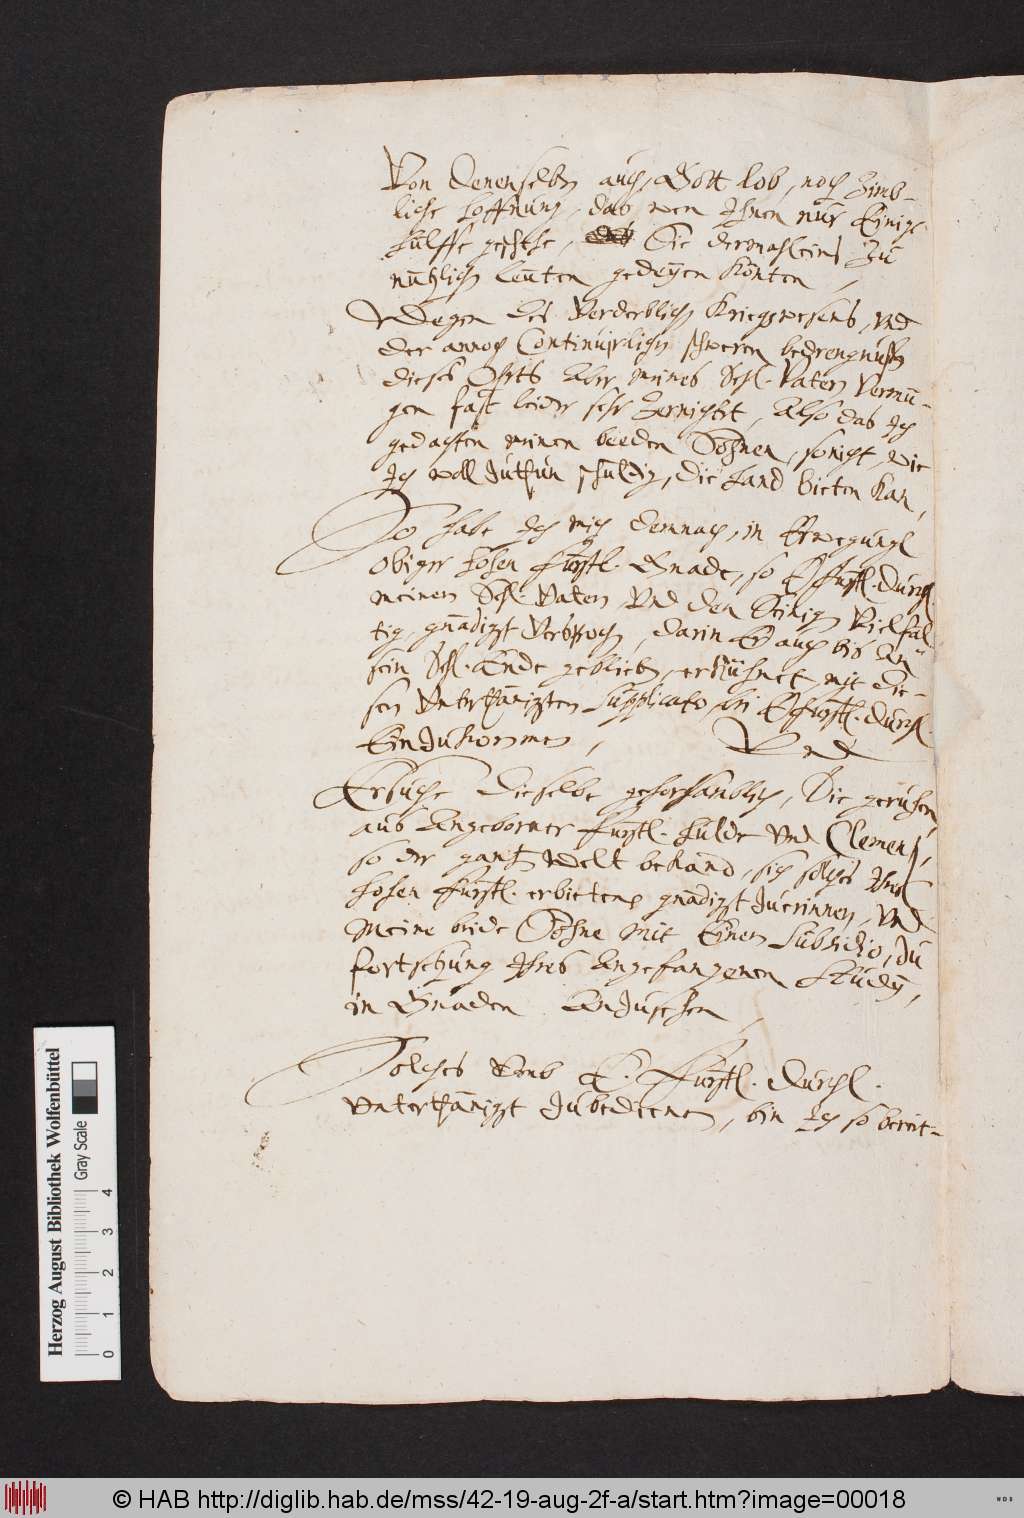 Von denenselben auch, Gott lob, noch Zimb-
liche hoffnung, das wen Ihnen nur Einige
hülffe geschehe, Sie dermahleins Zu
nützlich leuten gedeyen Könten,
Wegen des Verderblich Kriegswesens, und
der annoch Continuirlich schweren bedrengnüß
dieses Ohrts Aber meines Sehl. Vatern Vermü-
gen fast leider sehr Zernichtet, Also das Ich
gedachten meinen beeden Söhnen, so nicht, wie
Ich woll Zuthun schuldig, die Hand bieten Kan,
So habe Ich mich demnach, in Erwegung
obiger hohen Fürstl. Gnade, so E. Fürstl. Durchl.
meinem Sehl. Vatern und den Seinigen Vielfäl-
tig, gnädigst Versproch, darin Er auch bis An
sein Sehl. Ende geblieben, erkühnet mit die-
sen Unterthänigsten Supplicato, bei E. Fürstl. Durchl.
Ein Zukommen, Und
Ersuche dieselbe gehorsamblich, Die geruhen
aus Angeborner Fürstl. hulde und Clemenz,
so der gantz Welt bekand, sich solches Ihres
hohen Fürstl. erbietens gnädigst Zuerinnern, und
Meine beide Söhne Mit Einem Subsidio, Zu
fortsetzung Ihres Angefangenen Studij,
in Gnaden Anzusehen,
Solches umb E. Fürstl. Durchl.
Unterthänigst Zuverdienen, bin Ich so bereit-
Herzog August Bibliothek Wolfenbüttel
Gray Scale
0 1 2 3 4
© HAB http://diglib.hab.de/mss/42-19-aug-2f-a/start.htm?image=00018